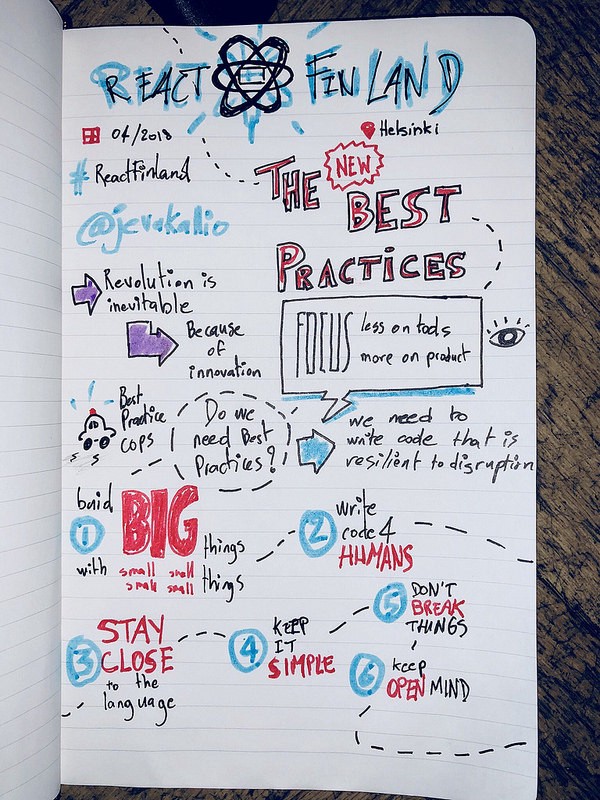 REACT FINLAND
04/2018
Helsinki
#ReactFinland
@jevakallio
THE NEW BEST
PRACTICES
Revolution is
inevitable
Because
of
innovation
FOCUS
less on tools
more on product
Best
Practice
cops
Do we
need Best
Practices?
we need to
write code that is
resilient to disruption
1
build
BIG things
with small small things
small small
2
write
code 4
HUMANS
3
STAY
CLOSE
to the
language
4
KEEP
IT
SIMPLE
5
DON'T
BREAK
THINGS
6
keep
OPEN MIND